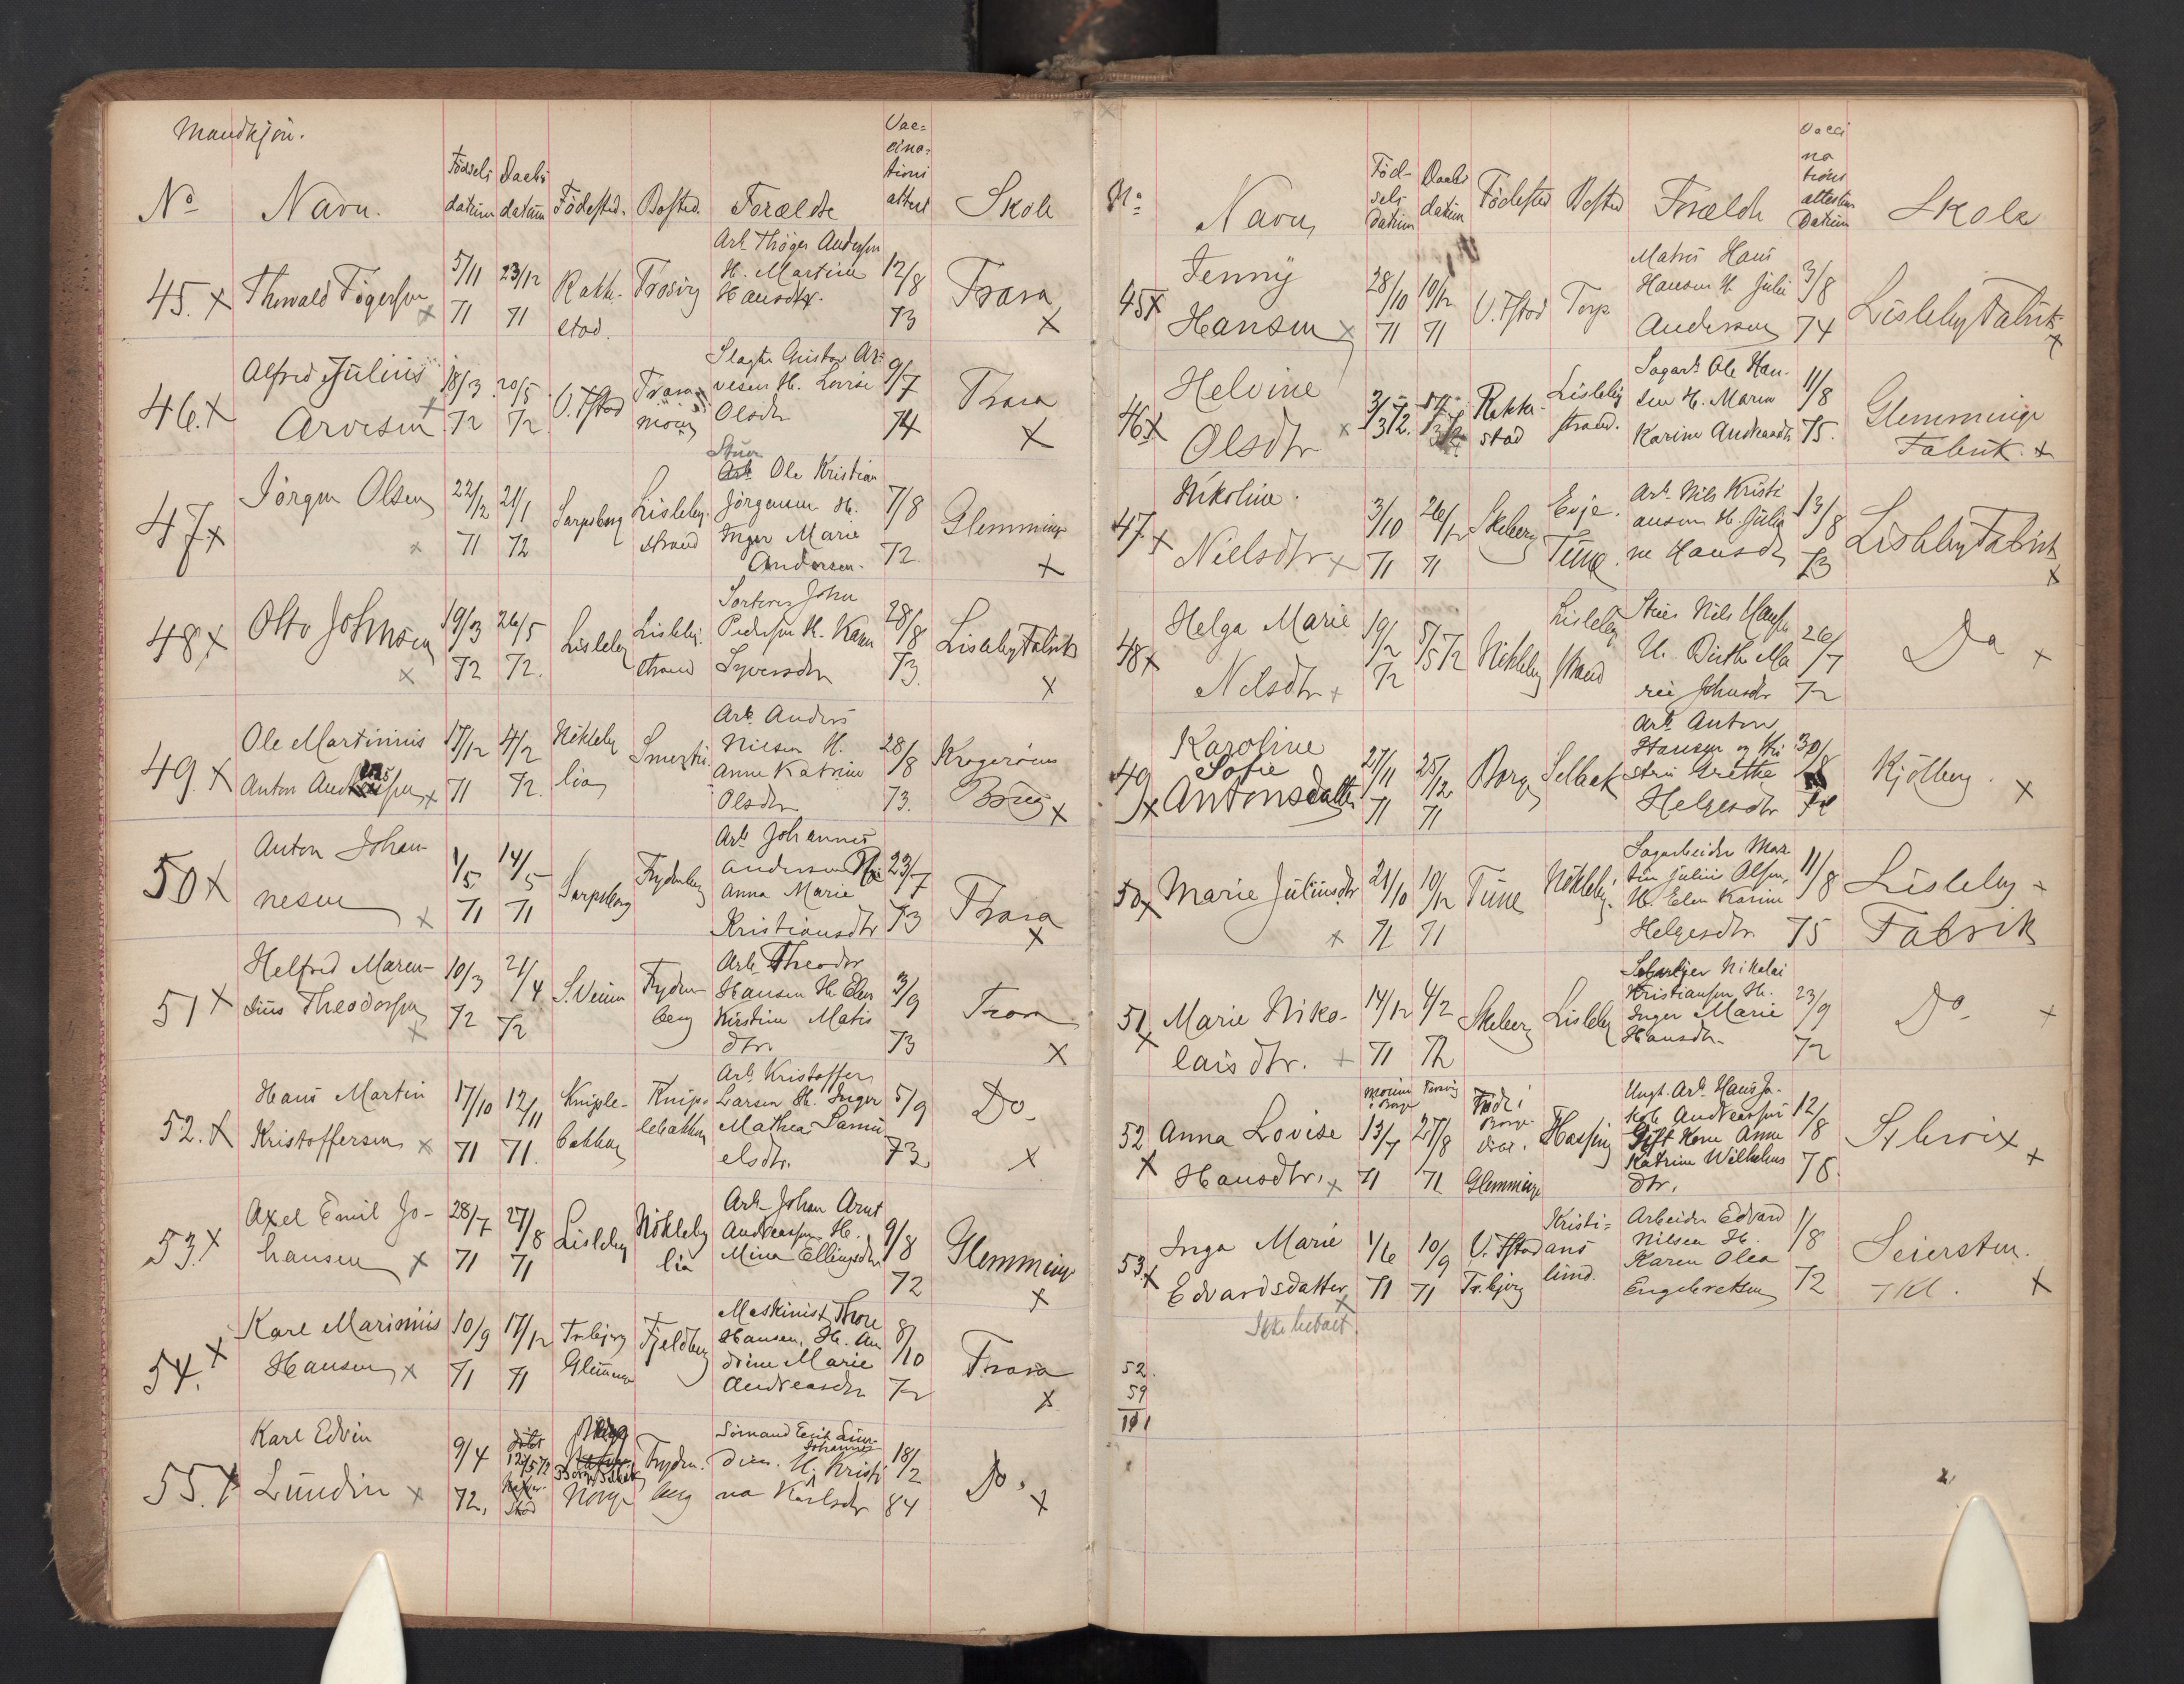 Mandkjön.
No Navn. Födsels datum Daabs datum Födested. Bosted. Forældre Vaccinations attest Skole
45. x Thorvald Tögersen x 5/11 71 23/12 71 Rakkestad. Trosvig Arb. Thöger Andersen H. Martine Hansdtr. 12/8 73 Trara x
46. x Alfred Julius Arvesen x 18/3 72 20/5 72 V. Fstad Slagter Gustav Arvesen H. Lovise Olsdtr 9/7 74 Trara x
47 x Jörgen Olsen x 22/12 71 21/1 72 Sarpsborg Lisleby strand Stuer Ole Kristian Jörgensen H. Inger Marie Andersen. 7/8 72 Glemminge x
48 x Otto Johnsen x 19/3 72 26/5 72. Lisleby Lisleby strand Sorterer John Pedersen H. Karen Syversdtr 28/8 73. Lisleby Fabrik x
49. x Ole Martinius Anton x 17/12 71 4/2 72. Nökleby lia Arb. Anders Nilsen H. Anne Katrine Olsdtr 28/8 73. Krageröens Brug x
50 x Anton Johannesen x 1/5 71 14/5 71 Sarpsborg Frydenberg Arb. Johannes Andersen Anna Marie Kristiansdtr 23/7 73 Trara x
51 x Helfred Marensius Theodorsen x 10/3 72 21/4 72 Frydenberg Arb. Theodor Hansen H. Ellen Kirstine Matisdtr. 3/9 73 Trara x
52. x Hans Martin Kristoffersen x 17/10 71 12/11 71. Kniplebakken Kniplebakken Arb. Kristoffer Larsen H. Inger Mathea Samuelsdtr. 5/9 73 Do x
53. x Axel Emil Johansen x 28/7 71 27/8 71 Lisleby Nökleby lia Arb. Johan Arnt Andreassen H. Mina Ellingsdtr 9/8 72 Glemminge x
54. x Karl Marinius Hansen x 10/9 71 17/12 71 Trbjerg Glemminge Fjeldberg Maskinist Thore Hansen, H. Andrine Marie Andreasdtr 8/10 72 Trara x
55. x Karl Edvin Lundin x 9/4 72. döbt 12/5 72 Norge Frydenberg Sömand Emil Lundin. H. Johanne Kristina Karlsdtr 18/2 84 Do. x
No Navn Födsels Datum Daabs datum Födested Bosted Forældre Vaccinations attestens Datum Skole
45 x Jenny Hansen x 28/10 71 10/12 71 V. Fstad Torp Matros Hans Hansen H. Julie Andersen 3/8 74 Lisleby Fabrik x
46 x Helvine Olsdtr x 3/3 72. Rakkestad Lisleby strand. Sagarb. Ole Hansen H. Maren Karine Andreasdtr 11/8 75. Glemminge Fabrik. x
47. x Nikoline. Nielsdtr x 3/10 71 26/12 71 Skeberg Evje. Tune. Arb. Nils Kristiansen H. Juliane Hansdtr 13/8 73 Lisleby Fabrik x
48 x Helga Marie Nelsdtr x 19/2 72 5/5 72 Nökleby Lisleby strand Stuer Nils Hansen H. Birthe Marie Johnsdtr 26/7 72 Do x
49 x Karoline Sofie Antonsdatter 27/11 71 25/12 71 Borge Selbak Arb. Anton Hansen og Hustru Grethe Helgesdtr 30/8 Kjölberg. x
50 x Marie Juliusdtr x 21/10 71 10/12 71 Tune Nökleby. Sagarbeider Martin Julius Olsen, H. Elen Karine Helgesdtr. 11/8 75 Lisleby Fabrik x
51 x Marie Nikolaisdtr. x 14/12 71 4/2 72 Skeberg Lisleby Nikolai Kristiansen H. Inger Marie Hansdtr. 23/9 72 Do x
52 x Anna Lovise Hansdtr. x 13/7 71 27/8 71 Född i Borge Glemminge Ungk. Arb. Hans Jakob Andreassen Gift Kone Anne Katrine Wilhelmsdtr. 12/8 78. St. Croix x
53. x Inga Marie Edvardsdatter x 1/6 71 10/9 71 V. Fstad Tr.bjerg Kristianslund. Arbeider Edvard Nilsen H. Karen Olea Engebretsen 1/8 72 Seiersten. 7 Kl. x
52.
59
111